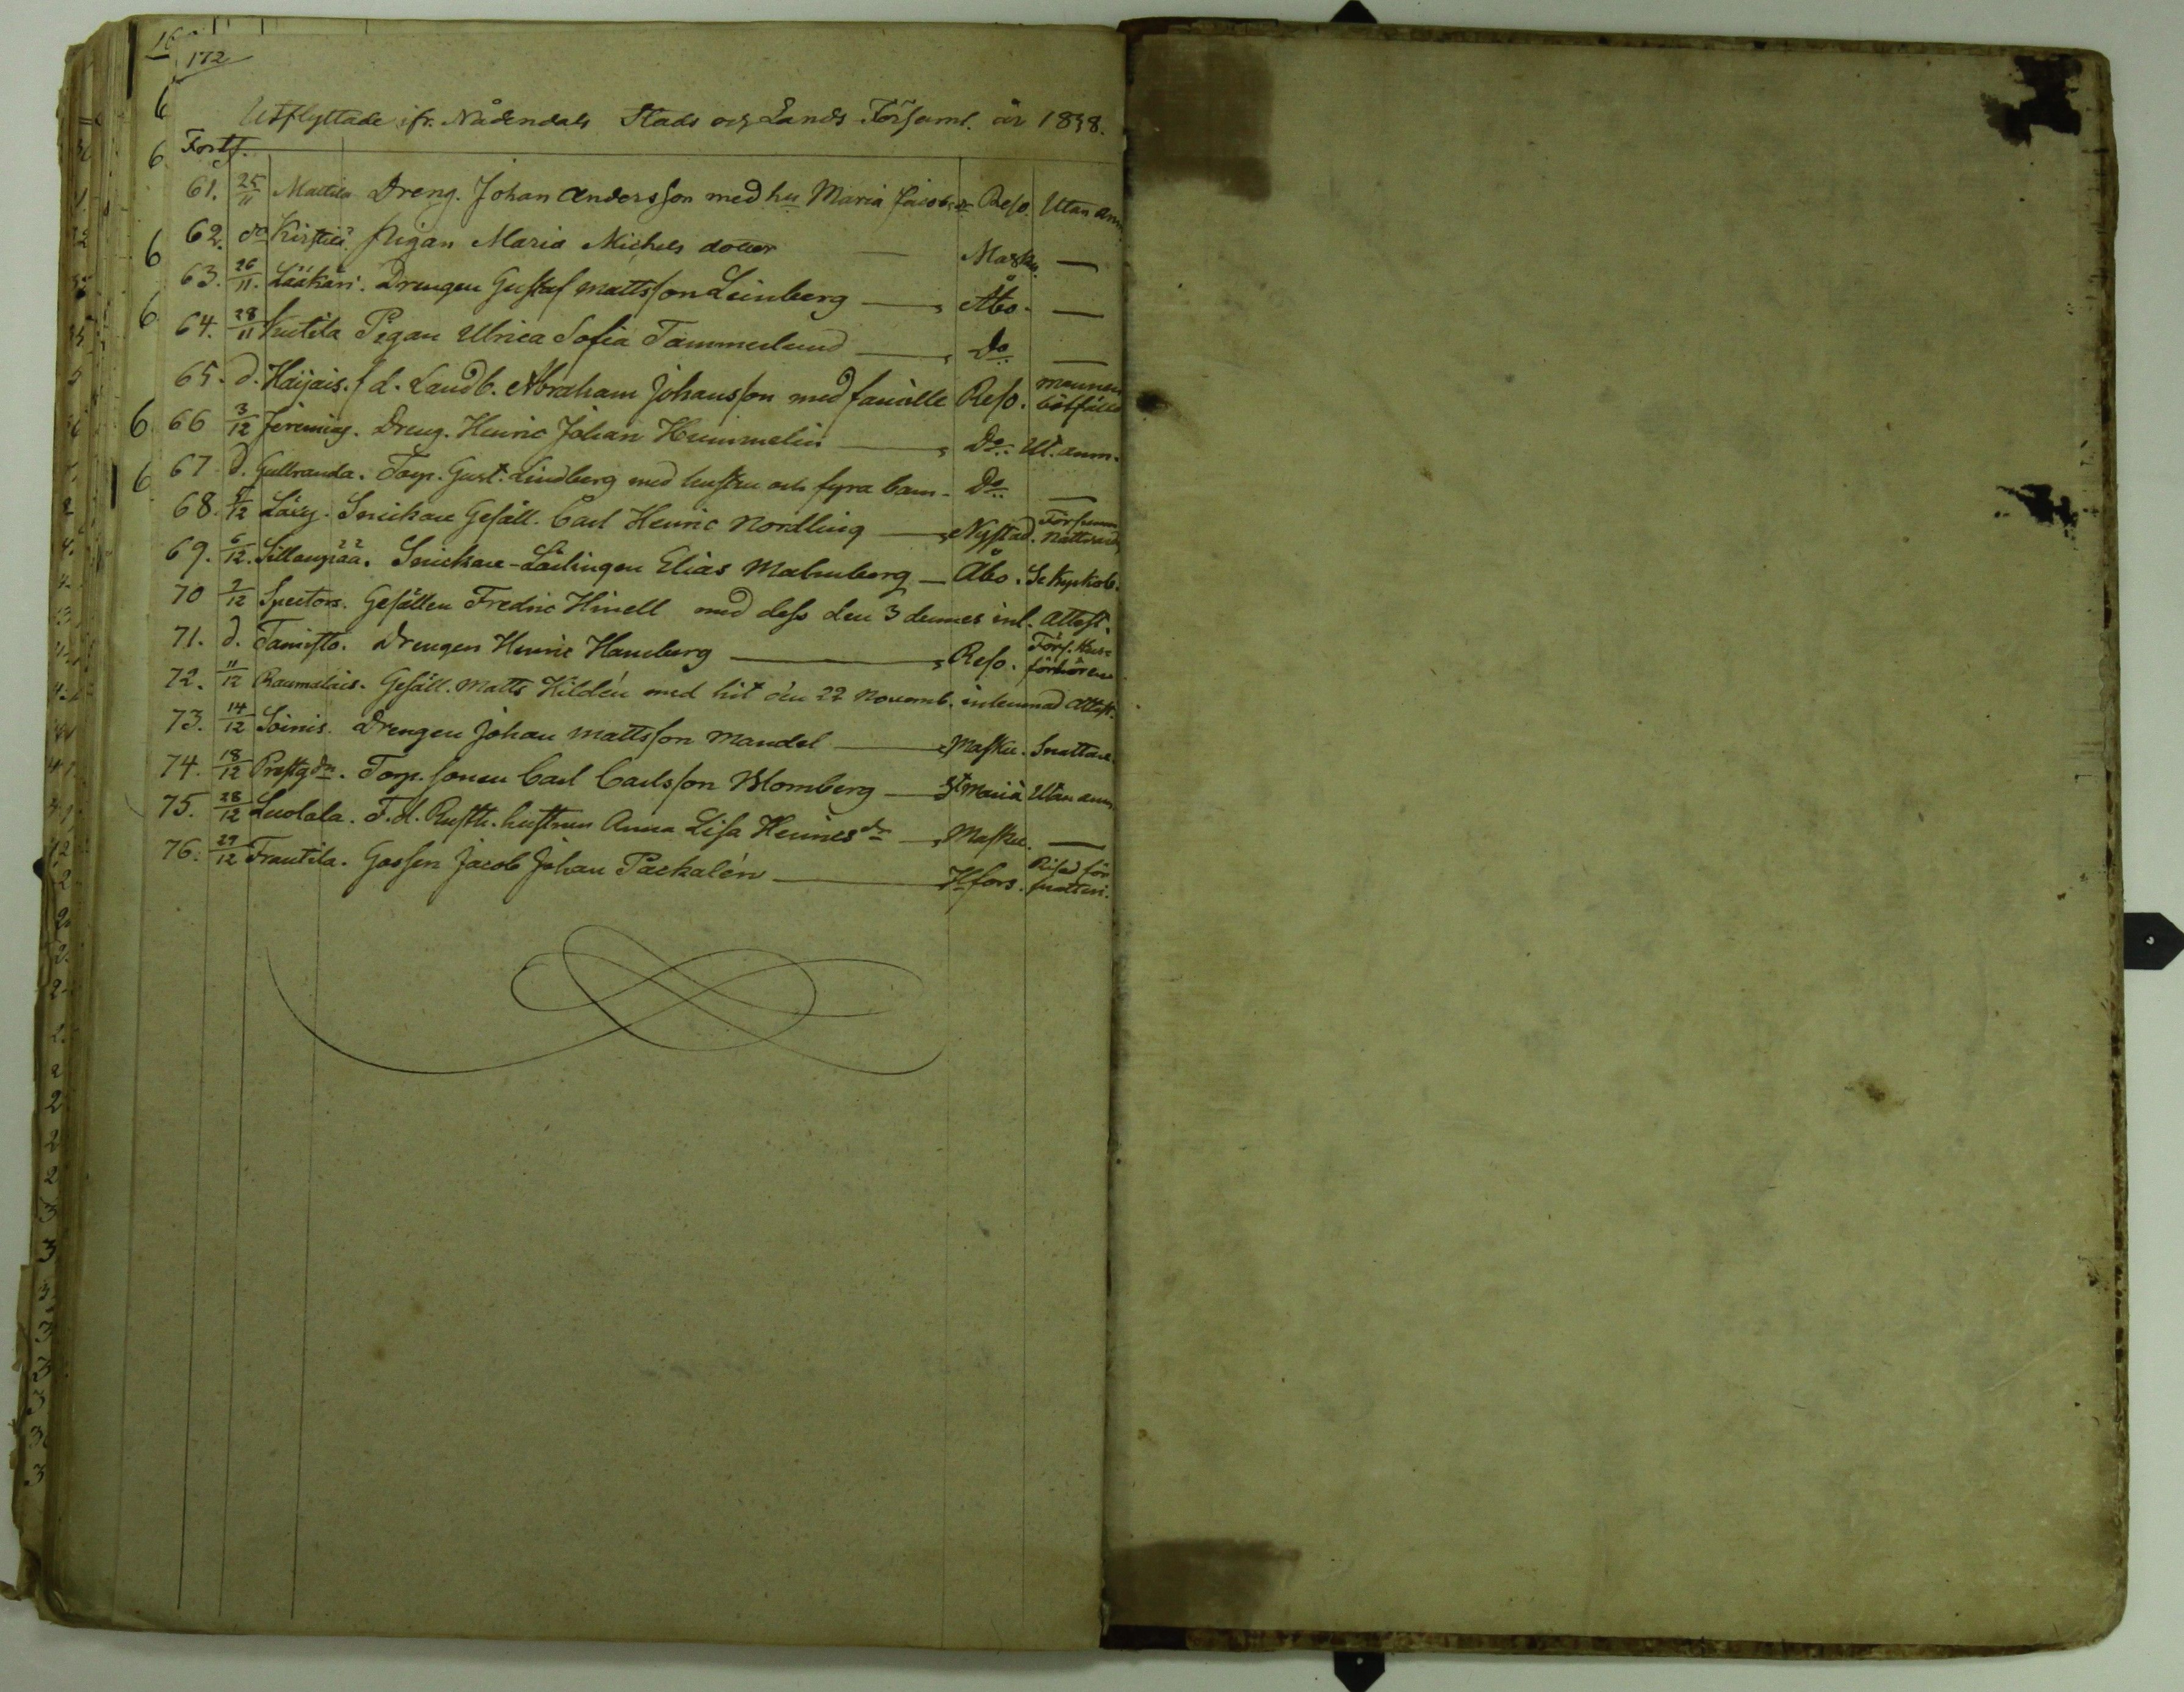 172
Utflyttade ifr. Nådendals Stads och Lands Församl. år 1838.
Forts.
61. 25/11 Mattila Dreng. Johan Andersson med hu Maria Jacobsdr Reso. Utan anm.
62. do Pigan Maria Michels dotter — Masku. —
63. 26/11. Lääkäri. Drengen Gustaf Mattsson Leinberg — Åbo. —
64. 28/11 Kutila Pigan Ulrica Sofia Tammerlund — Do —
65. d. Haijais. f d. Landb. Abraham Johansson med famille Reso. mannen bötfälld
66 3/12 Dreng. Henric Johan Hummelin — Do. Ut. anm.
67 d. Gullranda. Torp. Gust. Lindberg med hustru och fyra barn. Do —
68. 5/12 Snickare Gesäll. Carl Henric Nordling — Nystad. Försumm nattvard
69. 6/12. Sillanpää. Snickare-Lärlingen Elias Malmberg — Åbo. Se Kyrkob.
70 7/12 Spectors. Gesällen Fredric Hinell med dess den 3 dennes inl. Attest.
71. d. Tamisto. Drengen Henric Hamberg — Reso. Förs. förhören
72. 11/12 Raumalais. Gesäll. Matts Hildén med hit den 22 Novemb. inlemnad Attest.
73. 14/12 Soinis. Drengen Johan Mattsson Mandel — Masku. Snattare
74. 18/12 Prestgdn. Torp. sonen Carl Carlsson Blomberg — St Maria Utan anm.
75. 28/12 Luolala. F. d. Rusth. hustrun Anna Lisa Henricsdr — Masku. —
76. 29/12 Frantila. Gossen Jacob Johan Packalén — Hfors. Risad för snatteri.